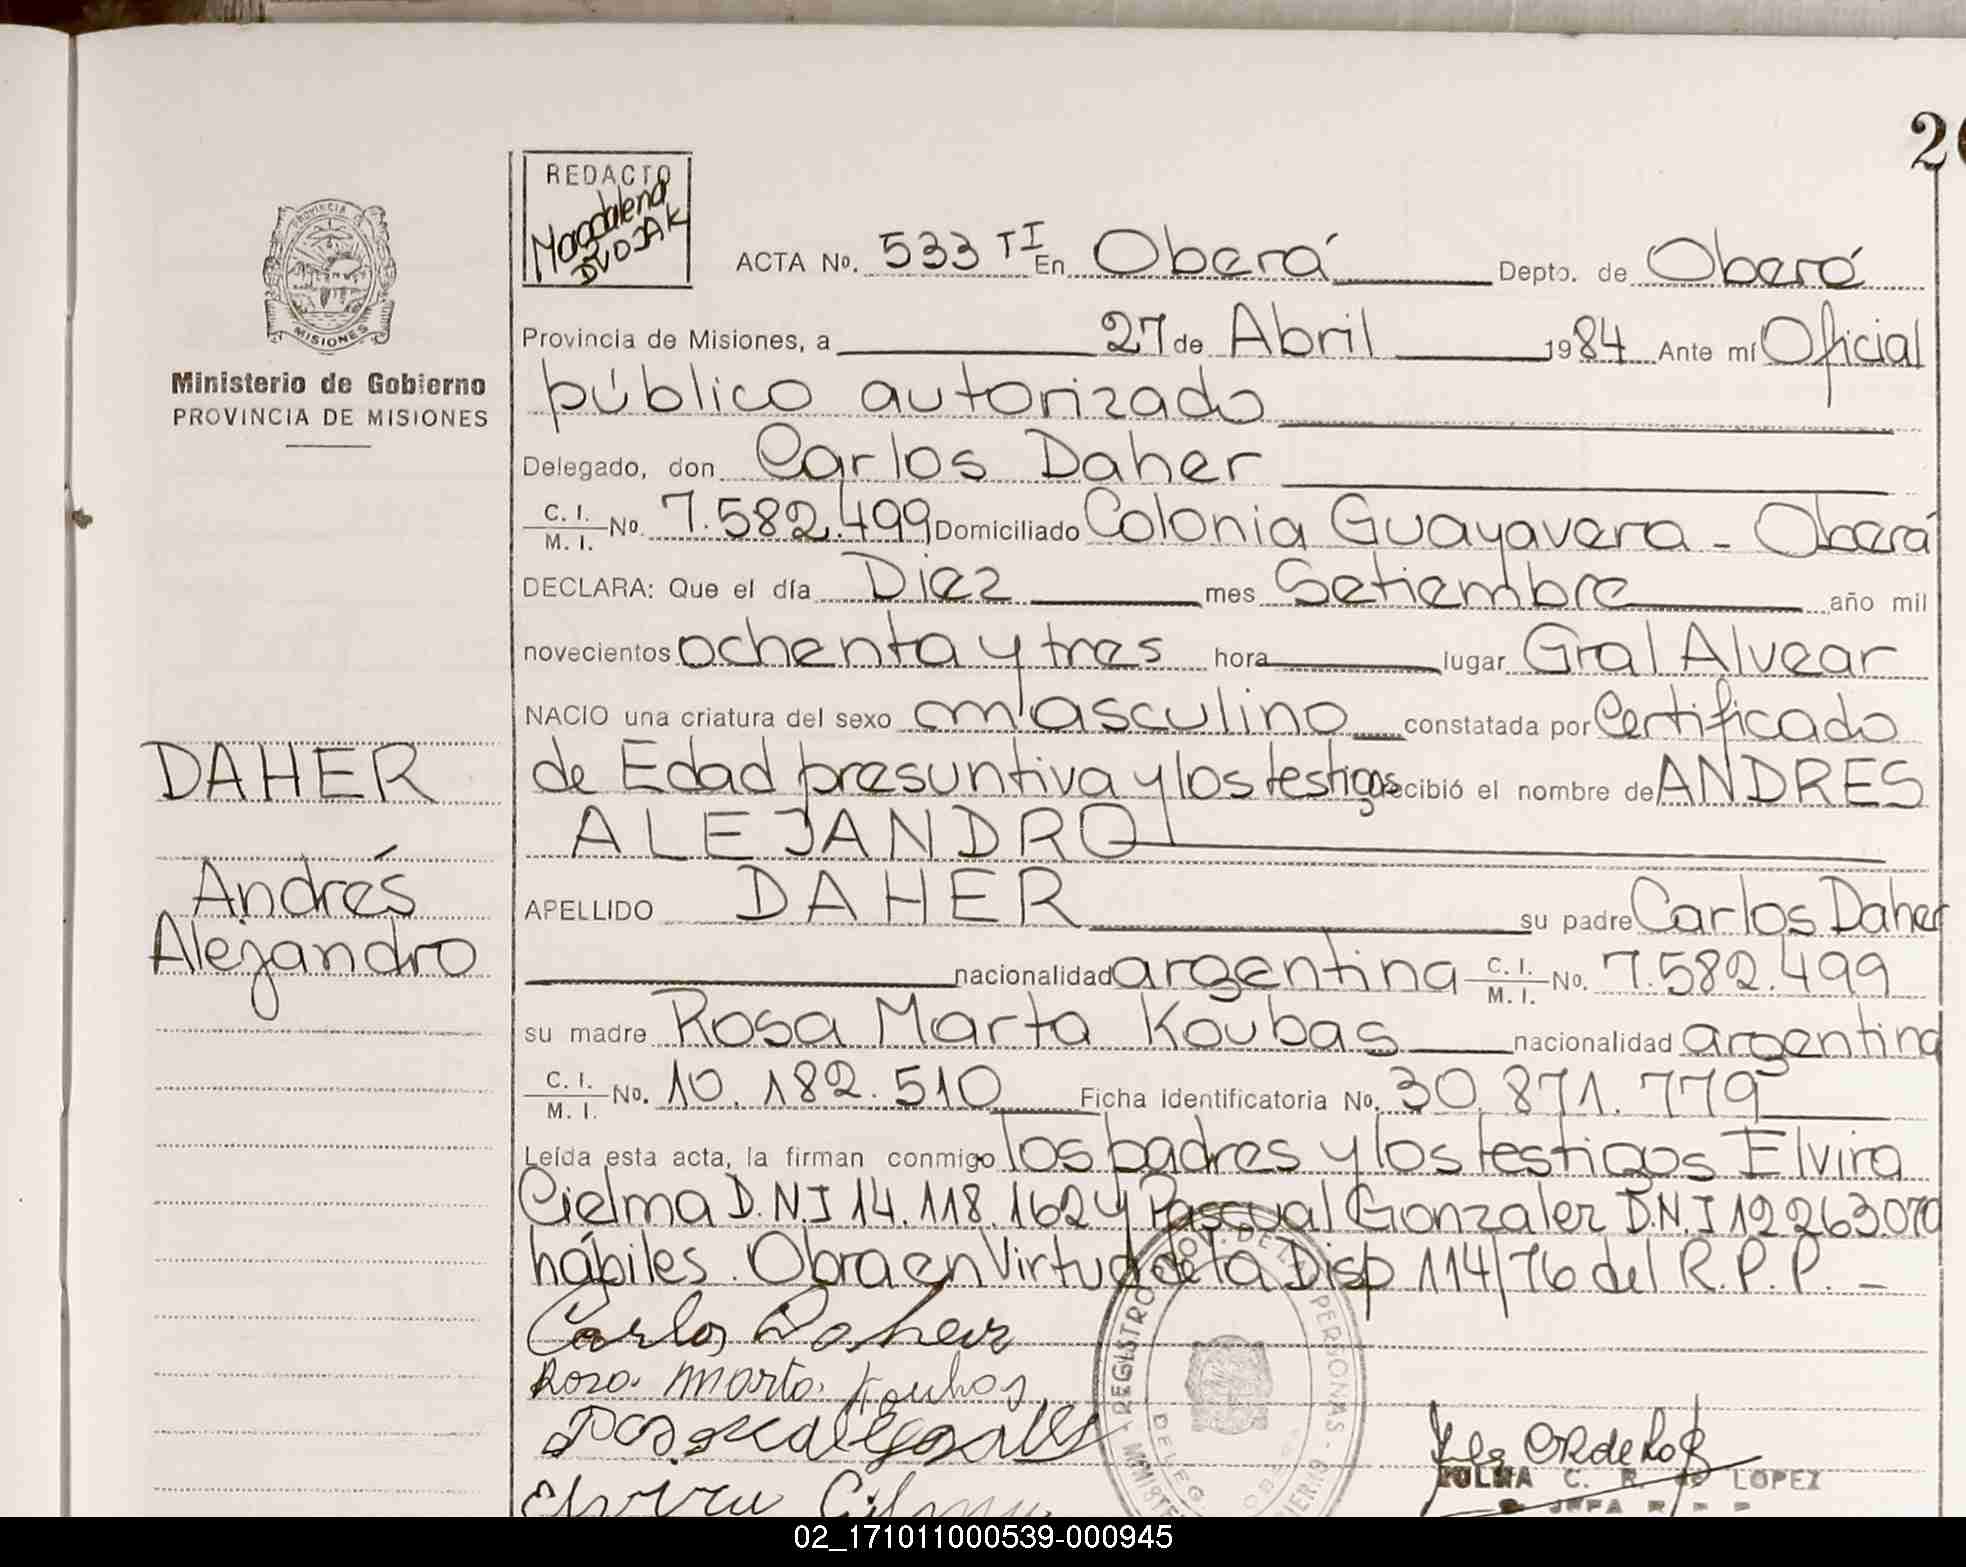 20
REDACTO
Magdalena
DVOJAK
PROVINCIA
MISIONES
Ministerio de Gobierno
PROVINCIA DE MISIONES
ACTA No. 533 TI En Oberá Depto. de Oberá
Provincia de Misiones, a 27 de Abril 1984 Ante mí Oficial
público autorizado
Delegado, don Carlos Daher
C. I. / M. I. No. 7.582.499 Domiciliado Colonia Guayavera - Oberá
DECLARA: Que el día Diez mes Setiembre año mil
novecientos ochenta y tres hora lugar Gral Alvear
NACIO una criatura del sexo masculino constatada por Certificado
de Edad presuntiva y los testigos recibió el nombre de ANDRES
ALEJANDRO
APELLIDO DAHER su padre Carlos Daher
nacionalidad argentina C. I. / M. I. No. 7.582.499
su madre Rosa Marta Koubas nacionalidad argentina
C. I. / M. I. No. 10.182.510 Ficha identificatoria No. 30.871.779
Leída esta acta, la firman conmigo los padres y los testigos Elvira
Cielma D.N.I 14.118.162 y Pascual Gonzalez D.N.I 12263.070
hábiles. Obra en Virtud de la Disp 114/76 del R.P.P. -
DAHER
Andrés
Alejandro
Carlos Daher
Rosa Marta Koubas
Pascual Gonzalez
Elvira
REGISTRO PROV. DE LAS PERSONAS
DELEG. OBERA
ZULMA C. R. de LOPEZ
JEFA R. P. P.
02_171011000539-000945